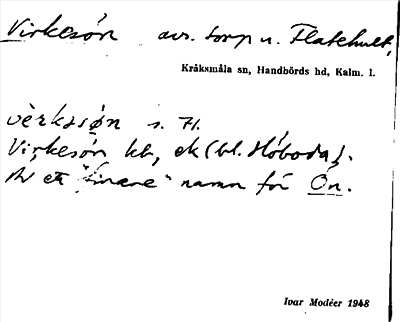 Virkesön avs. torp u. Flatehult,
Kråksmåla sn, Handbörds hd, Kalm. l.
vèrksşøn s. H.
Virkesön kb, ek (bl. Höboda).
Är ett "finare" namn för Ön.
Ivar Modéer 1948